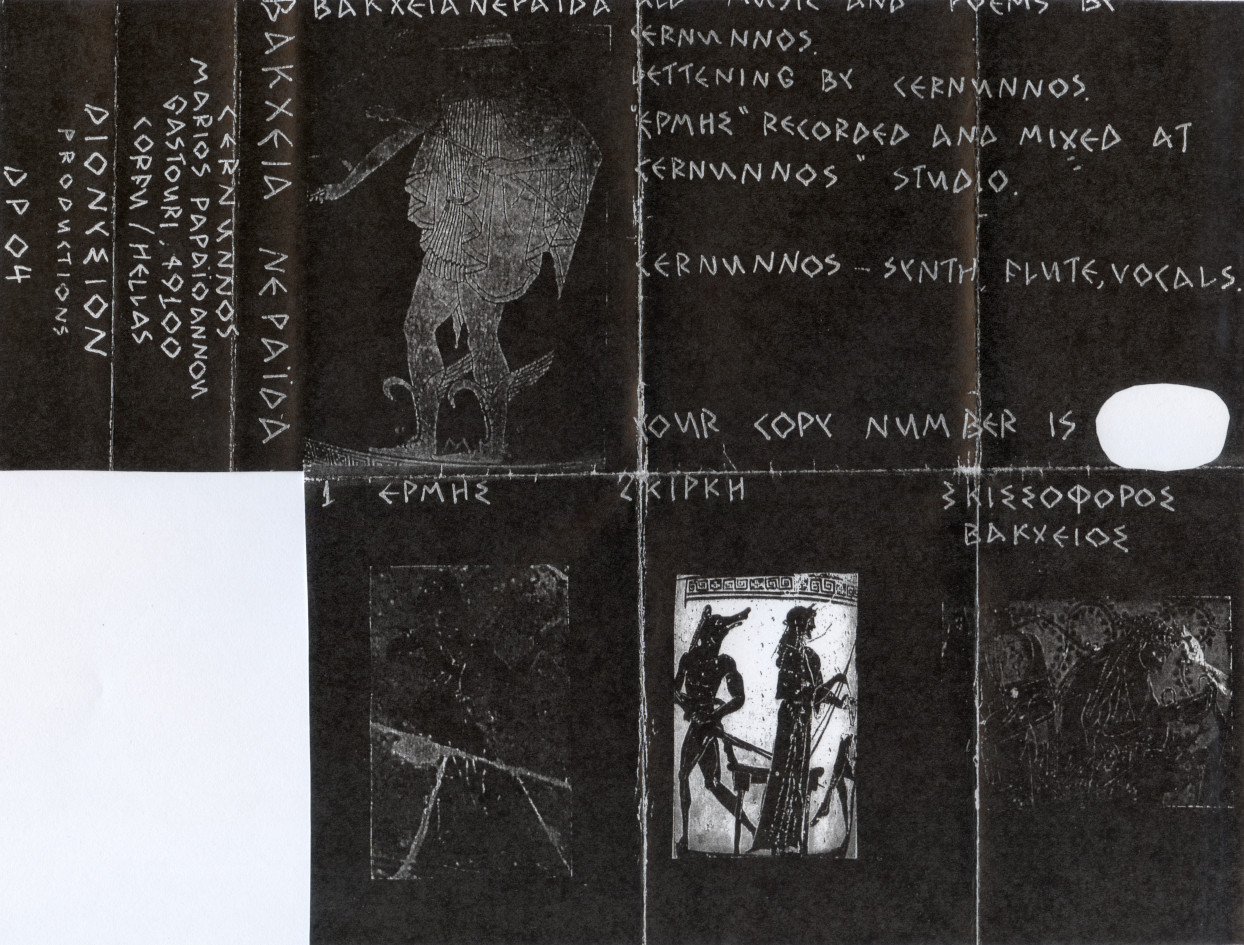 ΒΑΚΧΕΙΑ ΝΕΡΑΪΔΑ
ALL MUSIC AND POEMS BY
CERNUNNOS.
LETTERING BY CERNUNNOS.
"ΕΡΜΗΣ" RECORDED AND MIXED AT
"CERNUNNOS" STUDIO.
CERNUNNOS - SYNTH, FLUTE, VOCALS.
YOUR COPY NUMBER IS
ΒΑΚΧΕΙΑ ΝΕΡΑΪΔΑ
CERNUNNOS
MARIOS PAPAÏOANNOU
GASTOURI, 49100
CORFU / HELLAS
DIONYSION
PRODUCTIONS
DP 04
1 ΕΡΜΗΣ
2 ΚΙΡΚΗ
3 ΚΙΣΣΟΦΟΡΟΣ
ΒΑΚΧΕΙΟΣ